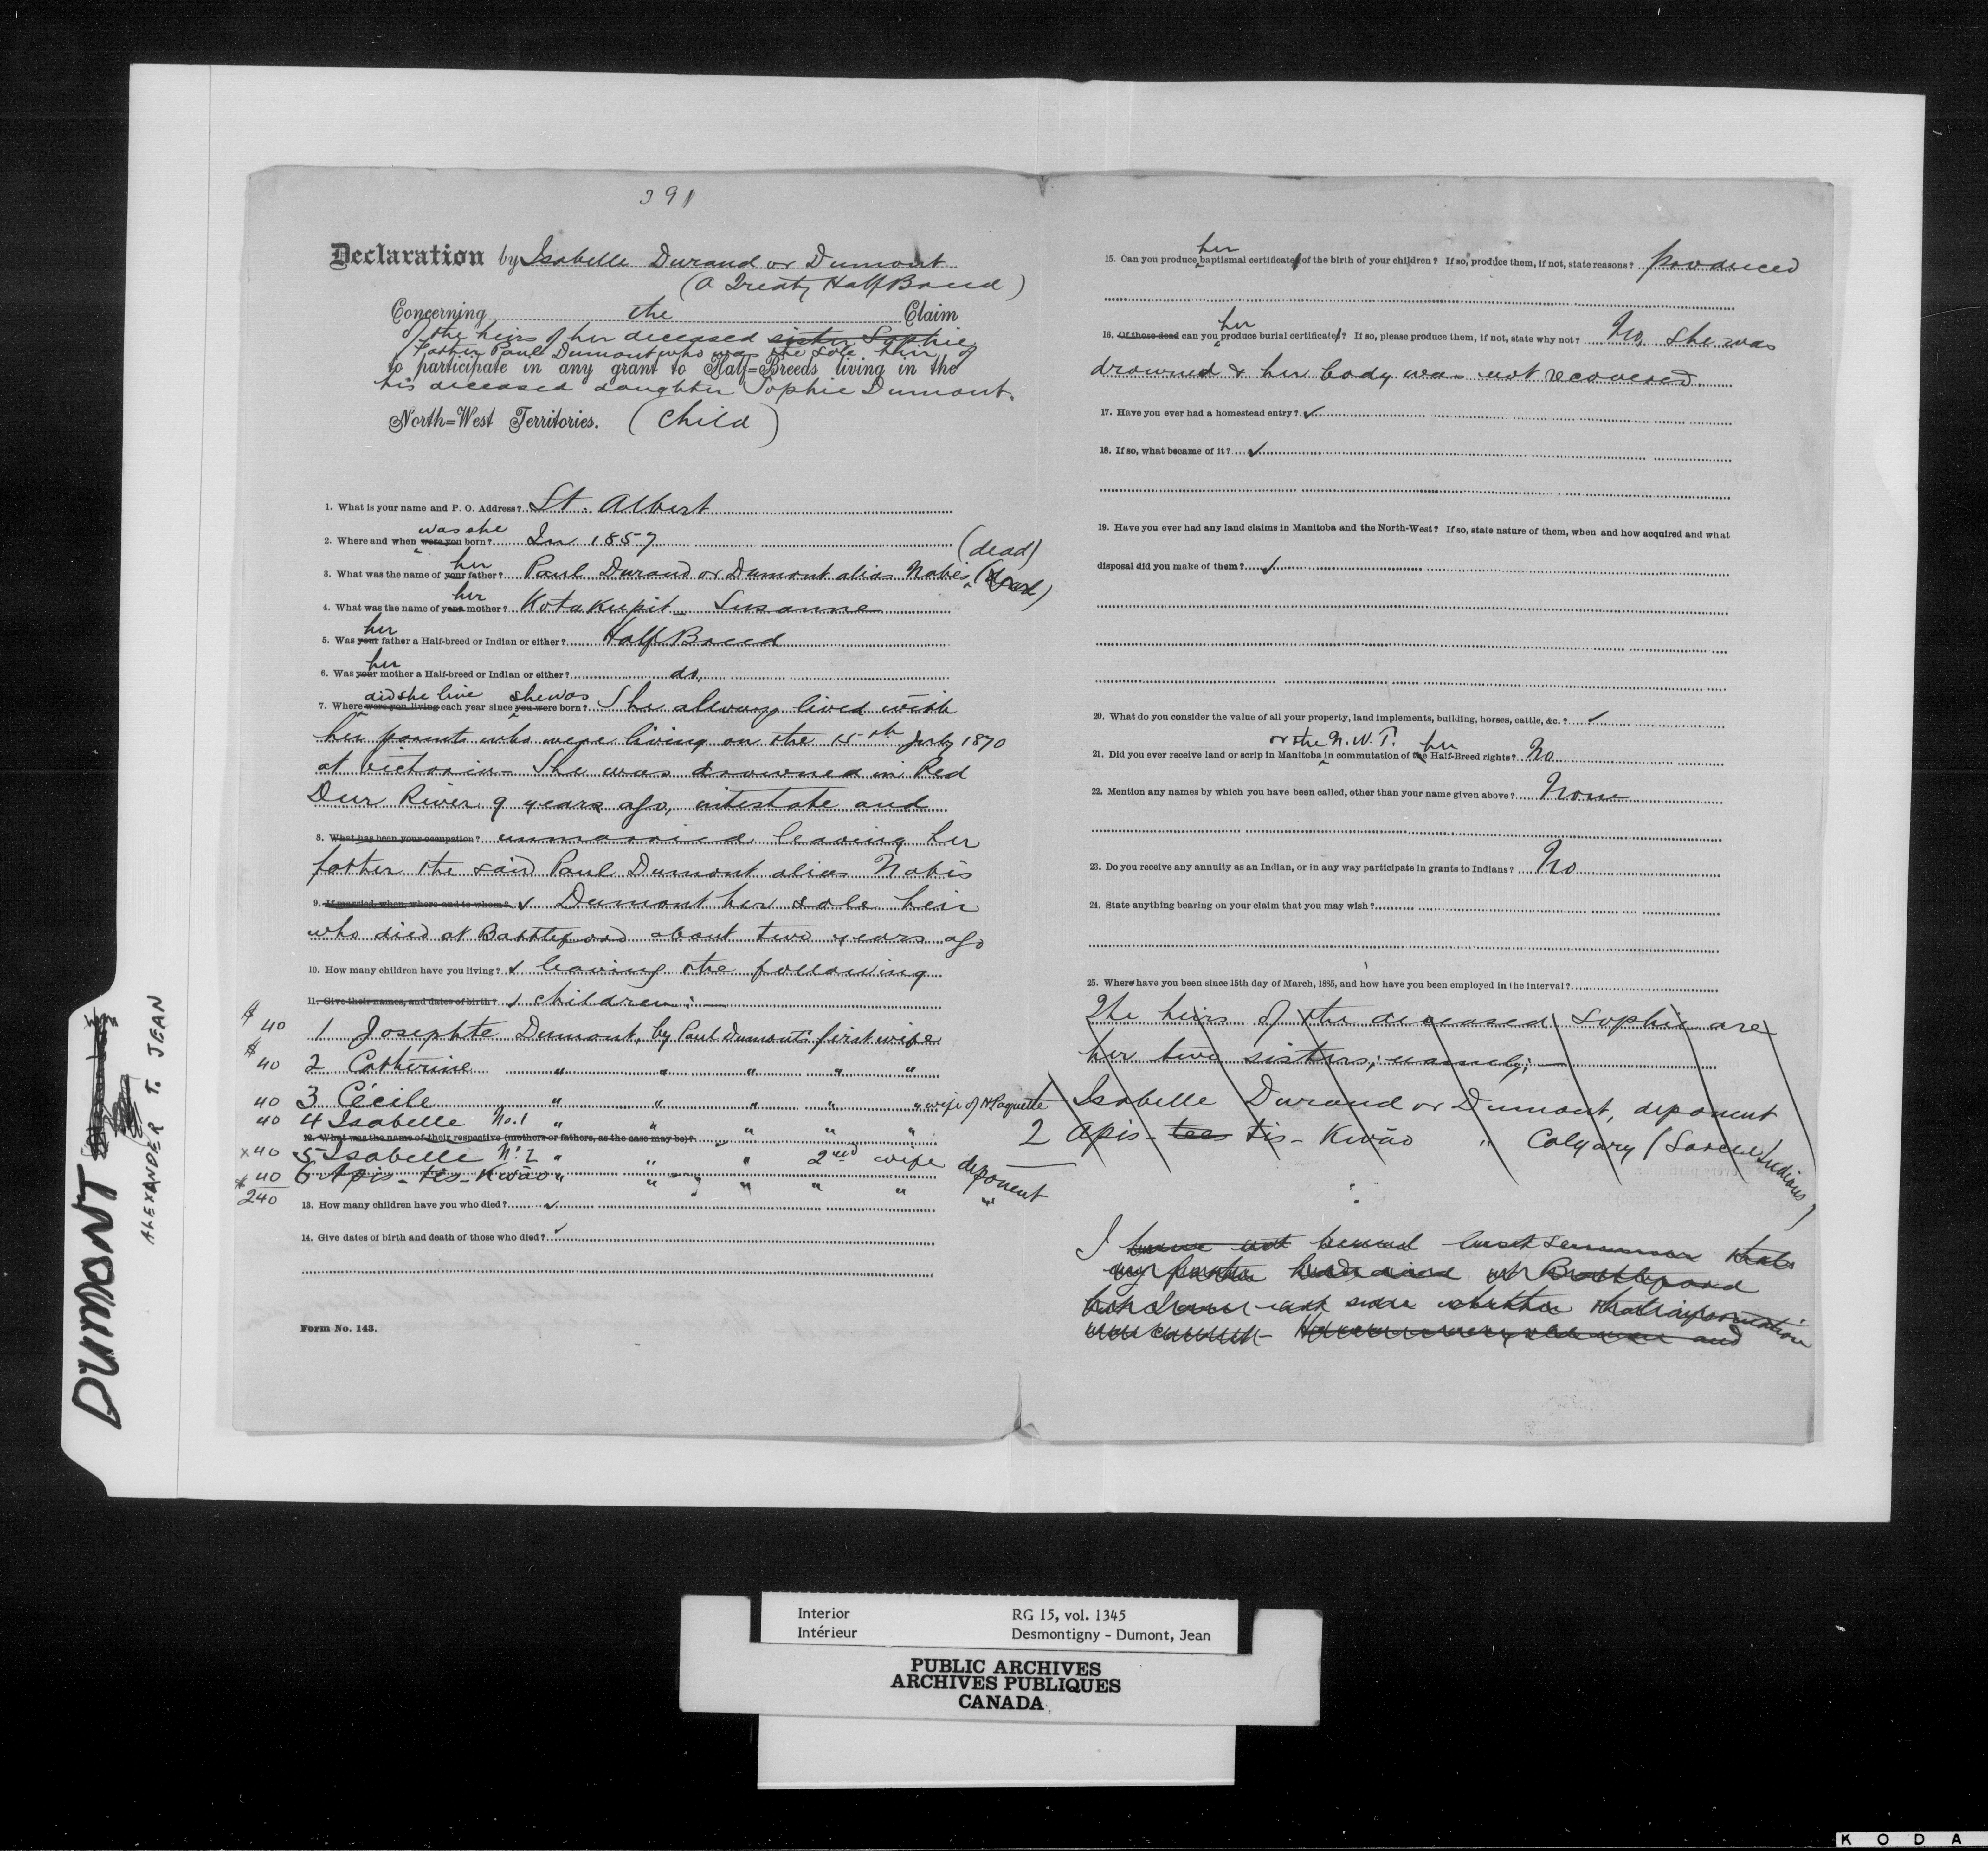 391
Declaration by Isabelle Durand or Dumont
(A Treaty Half Breed)
Concerning the Claim
of the heirs of her deceased sister Sophie
father Paul Dumont who was the sole heir of
to participate in any grant to Half=Breeds living in the
his deceased daughter Sophie Dumont.
North=West Territories. (Child)
1. What is your name and P. O. Address? St. Albert
was she
2. Where and when were you born? In 1857
(dead)
her
3. What was the name of your father? Paul Durand or Dumont alias Nabis (dead)
her
4. What was the name of your mother? Kotakupit Susanne
her
5. Was your father a Half-breed or Indian or either? Half Breed
her
6. Was your mother a Half-breed or Indian or either? do.
did she live she was
7. Where were you living each year since you were born? She always lived with
her parents who were living on the 15th July 1870
at Victoria - She was drowned in Red
Deer River 9 years ago, intestate and
8. What has been your occupation? unmarried leaving her
father the said Paul Dumont alias Nabis
9. If married, when, where and to whom? ✓ Dumont her sole heir
who died at Battleford about two years ago
10. How many children have you living? ✓ leaving the following
11. Give their names, and dates of birth? ✓ children: —
$ 40 1 Josephte Dumont, by Paul Dumont's first wife
$ 40 2 Catherine " " " " "
40 3 Cécile " " " " " wife of N Paquette
40 4 Isabelle No. 1 " " " " "
12. What was the name of their respective (mothers or fathers, as the case may be)?
x 40 5 Isabelle No. 2 " " " 2nd wife deponent
$ 40 6 Apis-tis-Kwāo " " " " " "
240
13. How many children have you who died? ✓
14. Give dates of birth and death of those who died? ✓
Form No. 143.
her
15. Can you produce baptismal certificate of the birth of your children? If so, produce them, if not, state reasons? produced
her
16. Of those dead can you produce burial certificates? If so, please produce them, if not, state why not? No. She was
drowned & her body was not recovered.
17. Have you ever had a homestead entry? ✓
18. If so, what became of it? ✓
19. Have you ever had any land claims in Manitoba and the North-West? If so, state nature of them, when and how acquired and what
disposal did you make of them? ✓
20. What do you consider the value of all your property, land implements, building, horses, cattle, &c.? ✓
or the N.W.T. her
21. Did you ever receive land or scrip in Manitoba in commutation of the Half-Breed rights? No
22. Mention any names by which you have been called, other than your name given above? None
23. Do you receive any annuity as an Indian, or in any way participate in grants to Indians? No
24. State anything bearing on your claim that you may wish?
25. Where have you been since 15th day of March, 1885, and how have you been employed in the interval?
The heirs of the deceased Sophie are
her two sisters; namely; —
1 Isabelle Durand or Dumont, deponent
2 Apis-tees tis-Kwāo " Calgary (Sarcee Indians)
I have not heard last summer that
my father had died at Battleford
but I am not sure whether that information
was correct - He was a very old man and
DUMONT
ALEXANDER T. JEAN
Interior RG 15, vol. 1345
Intérieur Desmontigny - Dumont, Jean
PUBLIC ARCHIVES
ARCHIVES PUBLIQUES
CANADA
KODA